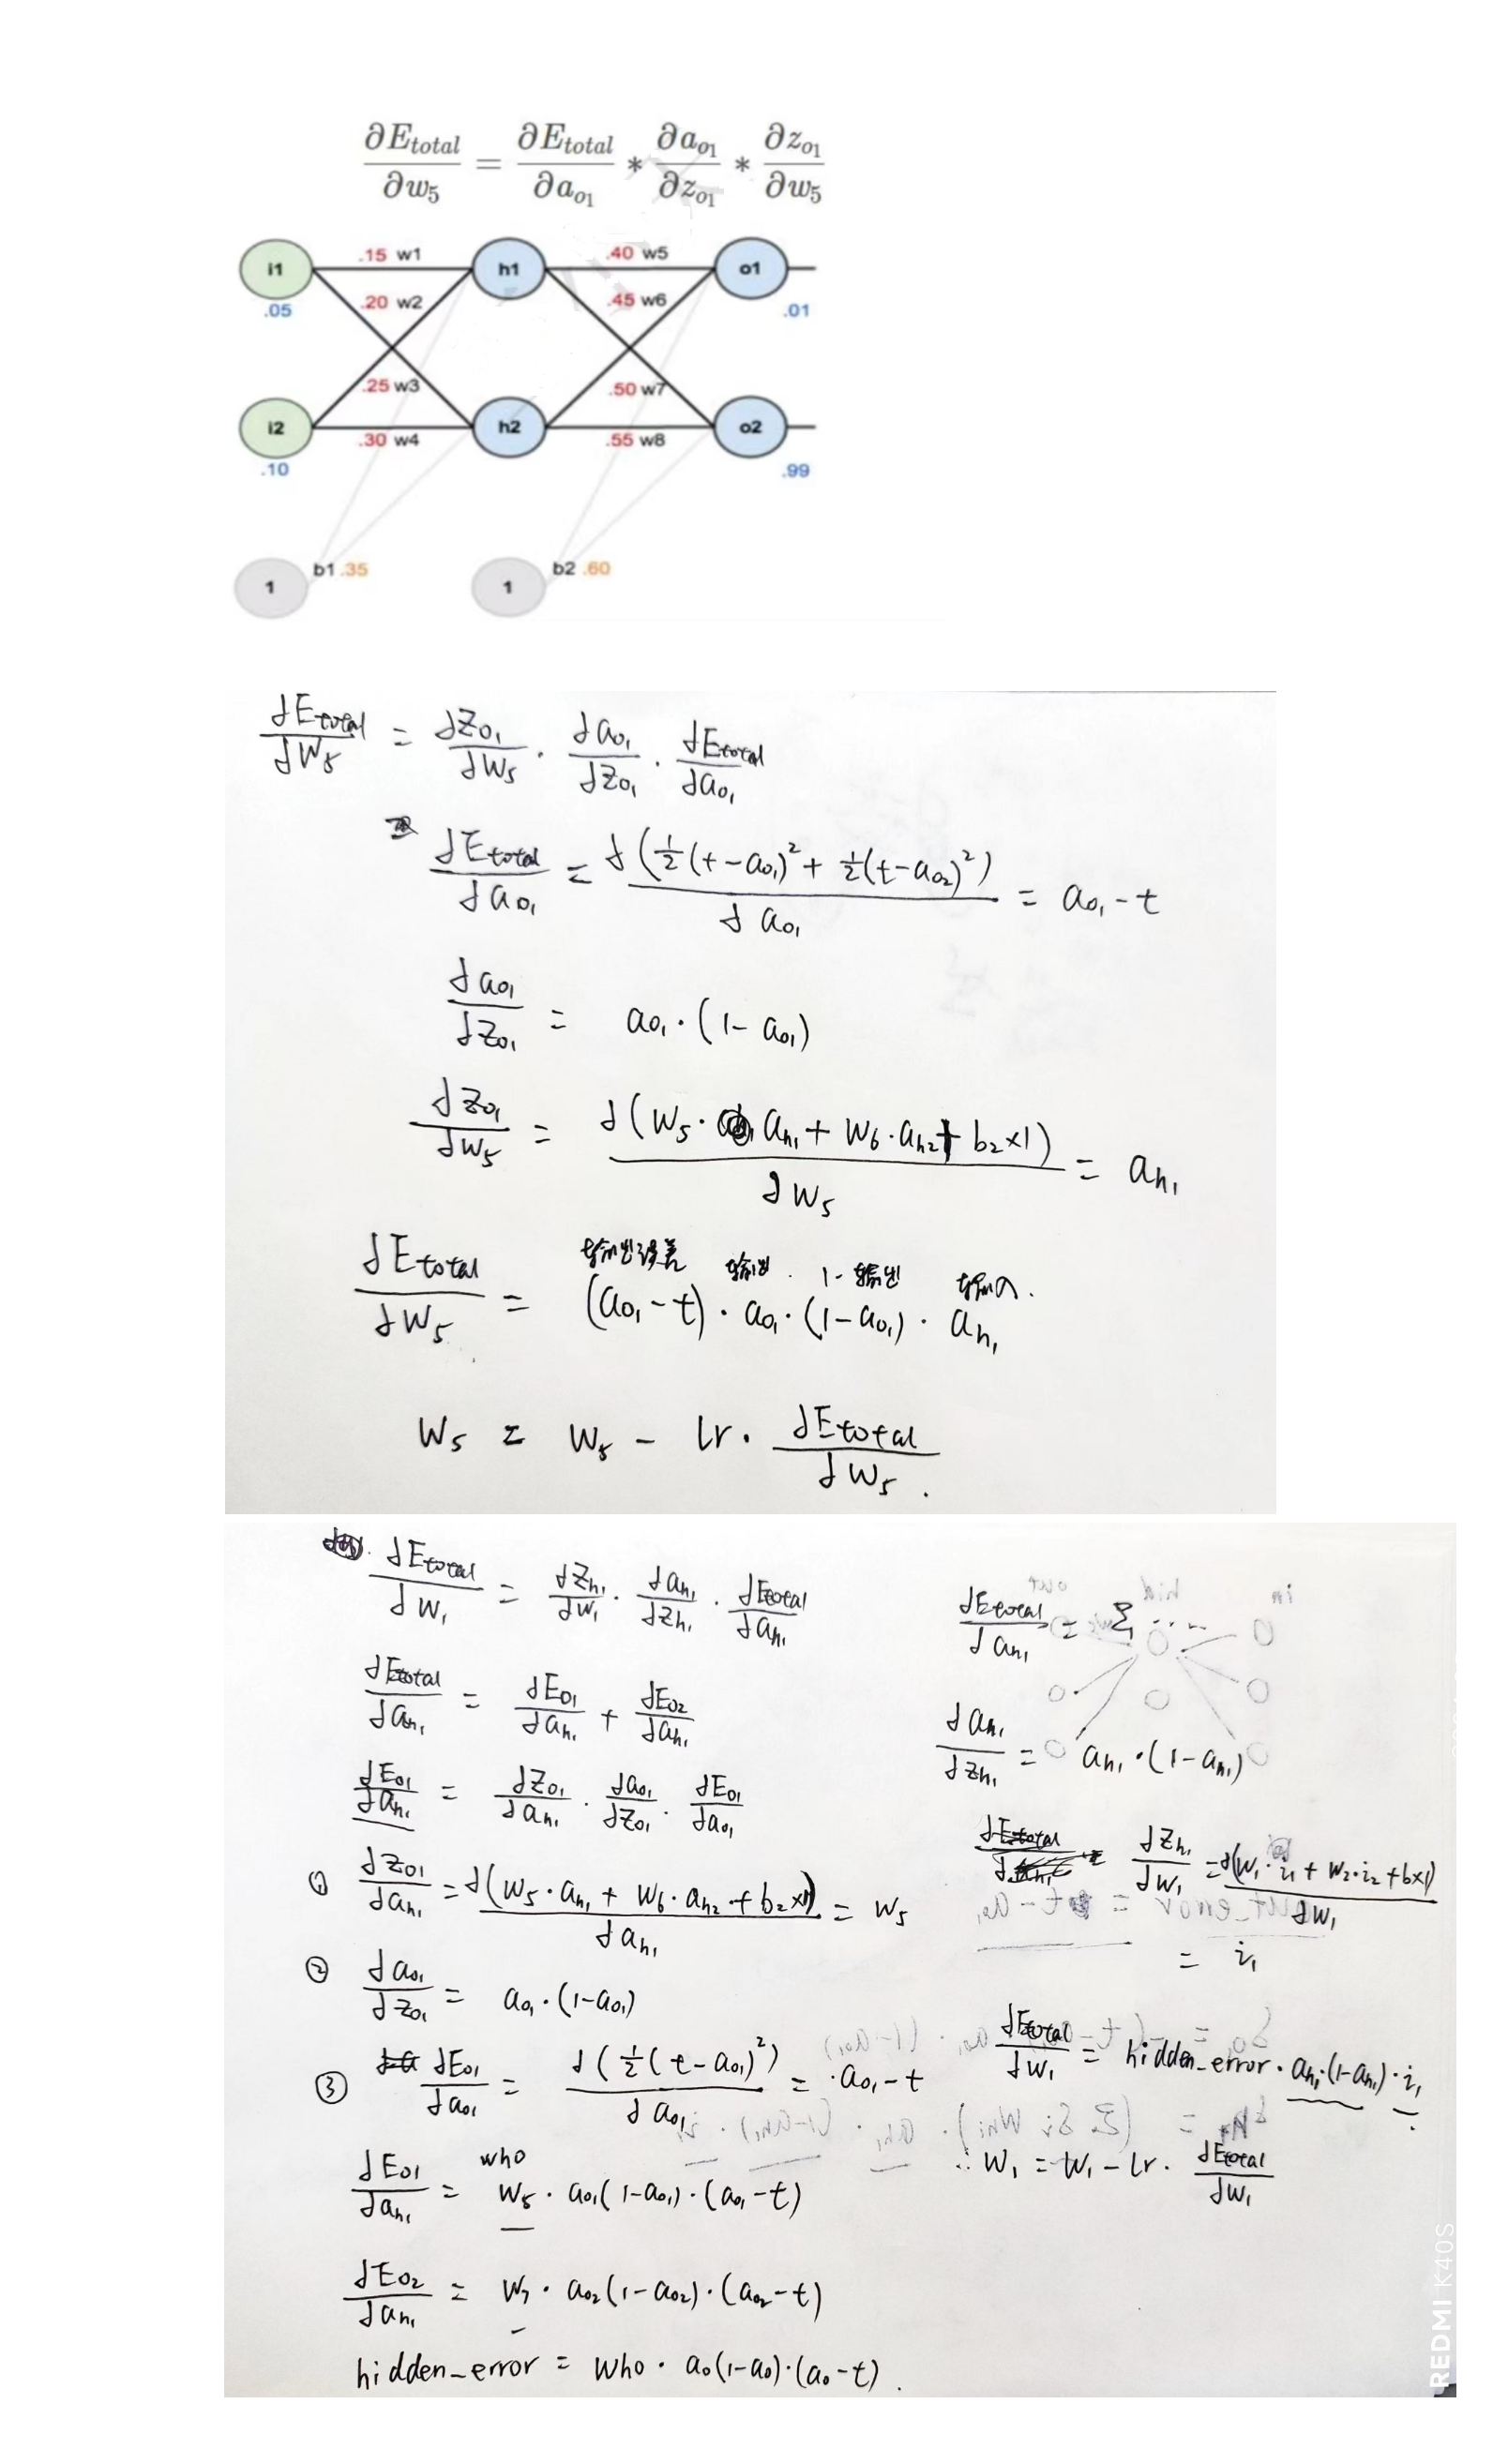 ∂E_total/∂w₅ = ∂E_total/∂a_o₁ * ∂a_o₁/∂z_o₁ * ∂z_o₁/∂w₅
i1 .15 w1 h1 .40 w5 o1
.05 .20 w2 .45 w6 .01
.25 w3 .50 w7
i2 .30 w4 h2 .55 w8 o2
.10 .99
1 b1 .35 1 b2 .60
∂E_total/∂W₅ = ∂Z_o₁/∂W₅ · ∂a_o₁/∂Z_o₁ · ∂E_total/∂a_o₁
∂E_total/∂a_o₁ = ∂(½(t-a_o₁)² + ½(t-a_o₂)²)/∂a_o₁ = a_o₁-t
∂a_o₁/∂Z_o₁ = a_o₁·(1-a_o₁)
∂Z_o₁/∂W₅ = ∂(W₅·a_h₁ + W₆·a_h₂ + b₂×1)/∂W₅ = a_h₁
输出误差 输出 · 1-输出 输入.
∂E_total/∂W₅ = (a_o₁-t)·a_o₁·(1-a_o₁)·a_h₁
W₅ = W₅ - lr·∂E_total/∂W₅.
∂E_total/∂W₁ = ∂Z_h₁/∂W₁ · ∂a_h₁/∂Z_h₁ · ∂E_total/∂a_h₁
∂E_total/∂a_h₁ = ∂E_o₁/∂a_h₁ + ∂E_o₂/∂a_h₁
∂E_o₁/∂a_h₁ = ∂Z_o₁/∂a_h₁ · ∂a_o₁/∂Z_o₁ · ∂E_o₁/∂a_o₁
① ∂Z_o₁/∂a_h₁ = ∂(W₅·a_h₁ + W₆·a_h₂ + b₂×1)/∂a_h₁ = W₅
② ∂a_o₁/∂Z_o₁ = a_o₁·(1-a_o₁)
③ ∂E_o₁/∂a_o₁ = ∂(½(t-a_o₁)²)/∂a_o₁ = ·a_o₁-t
who
∂E_o₁/∂a_h₁ = W₅·a_o₁(1-a_o₁)·(a_o₁-t)
∂E_o₂/∂a_h₁ = W₇·a_o₂(1-a_o₂)·(a_o₂-t)
hidden_error = who·a_o(1-a_o)·(a_o-t).
∂E_total/∂a_h₁ = Σ ····
∂a_h₁/∂Z_h₁ = a_h₁·(1-a_h₁)
∂Z_h₁/∂W₁ = ∂(W₁·i₁ + W₂·i₂ + b×1)/∂W₁
= i₁
∂E_total/∂W₁ = hidden_error·a_h₁·(1-a_h₁)·i₁
∴ W₁ = W₁ - lr·∂E_total/∂W₁
REDMI K40S